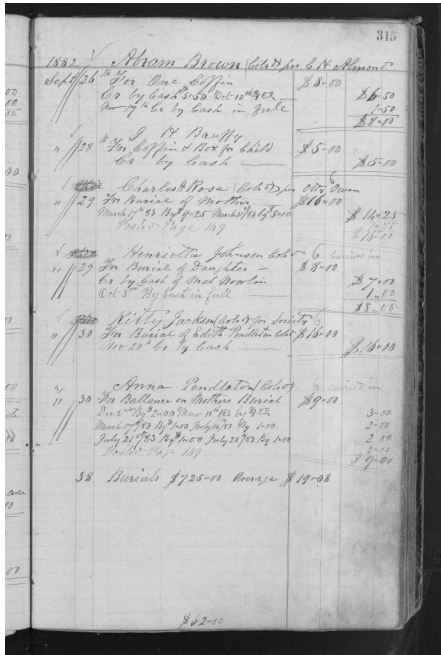 315
1882 Abram Brown (Cold) per C H Almond
Sept 26th For One Coffin $8-00
Cr by Cash $5-50 Oct 12th $6-50
Nov 17th Cr By Cash in full 1-50
$8-00
J H
" 28 For Coffin & Box for Child $5-00
Cr by Cash $5-00
Charles H Rose (Cold) per Otto Owen
" 29 For Burial of Mother $16-00
March 17th 83 By $9-25 $5-00 $14-25
Posted Page 149 $16-00
Henrietta Johnson Cold
" 29 For Burial of Daughter $8-00
Cr By Cash of Mat $7-00
Oct 3rd By Cash in full 1-00
$8-00
Kitty Jackson (Cold) for Society
" 30 For Burial of Edith Pendleton Cold $16-00
Nov 20th Cr By Cash $16-00
Anna Pendleton (Cold)
" 30 For Ballance on Mothers Burial $9-00
Dec 2nd By $2-00 Mar 10th 83 by 3-00
March 17th 83 By 1-00 83 By 1-00 2-00
July 21st 83 By 1-00 July 28th 83 By 1-00 2-00
Posted Page 149 2-00
$9-00
38 Burials $725-00 Average $19-08
$62-00